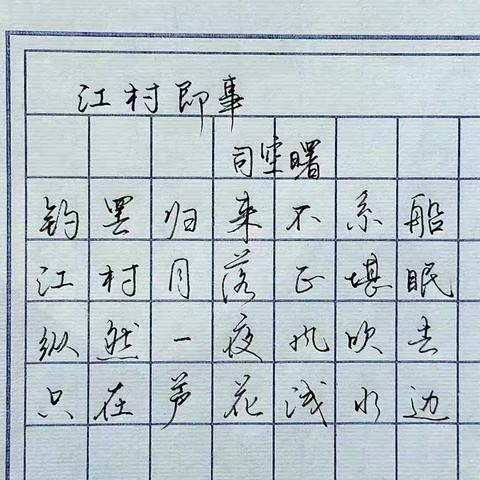 江村即事
司空曙
钓罢归来不系船
江村月落正堪眠
纵然一夜风吹去
只在芦花浅水边